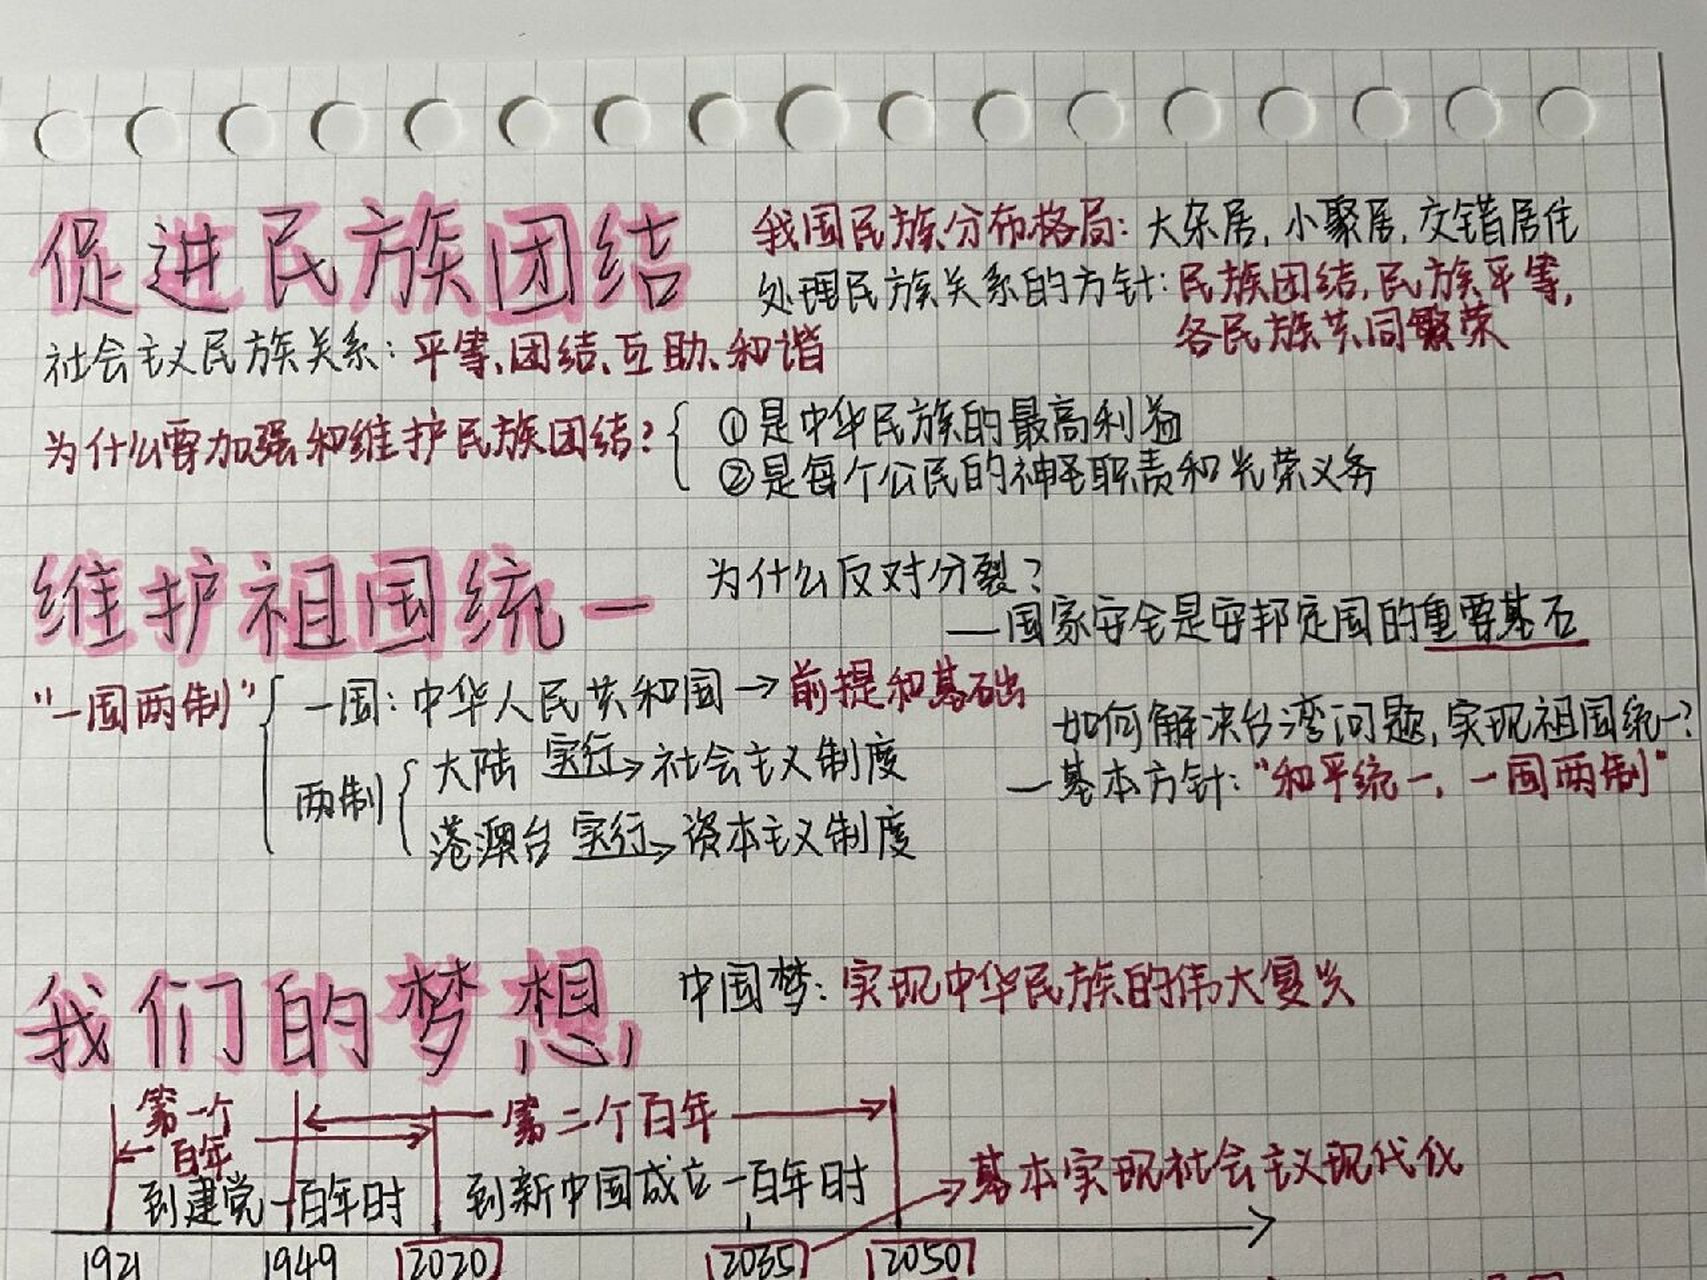 促进民族团结
我国民族分布格局：大杂居，小聚居，交错居住
处理民族关系的方针：民族团结，民族平等，
各民族共同繁荣
社会主义民族关系：平等、团结、互助、和谐
为什么要加强和维护民族团结？
①是中华民族的最高利益
②是每个公民的神圣职责和光荣义务
维护祖国统一
为什么反对分裂？
—国家安全是安邦定国的重要基石
“一国两制”
一国：中华人民共和国→前提和基础
两制
大陆 实行→社会主义制度
港澳台 实行→资本主义制度
如何解决台湾问题，实现祖国统一？
—基本方针：“和平统一，一国两制”
我们的梦想
中国梦：实现中华民族的伟大复兴
第一个
百年
第二个百年
到建党一百年时
到新中国成立一百年时
→基本实现社会主义现代化
1921 1949 2020 2035 2050